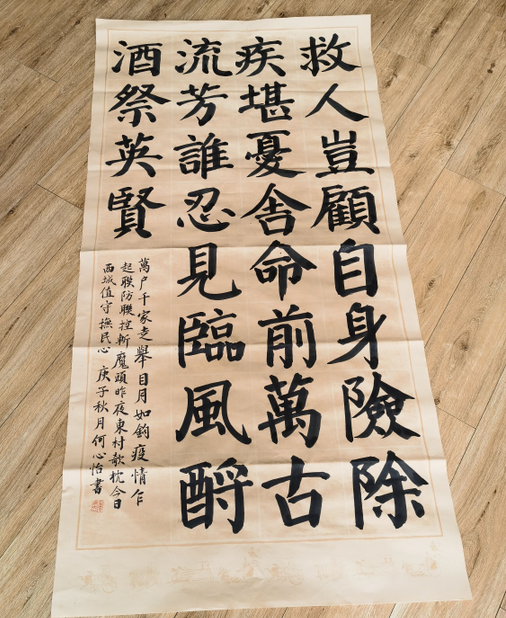 救人豈顧自身險除
疾堪憂舍命前萬古
流芳誰忍見臨風酹
酒祭英賢
萬户千家走舉目月如鈎疫情乍
起联防聯控斬魔頭昨夜東村欹枕今日
西城值守撫民心 庚子秋月何心怡書